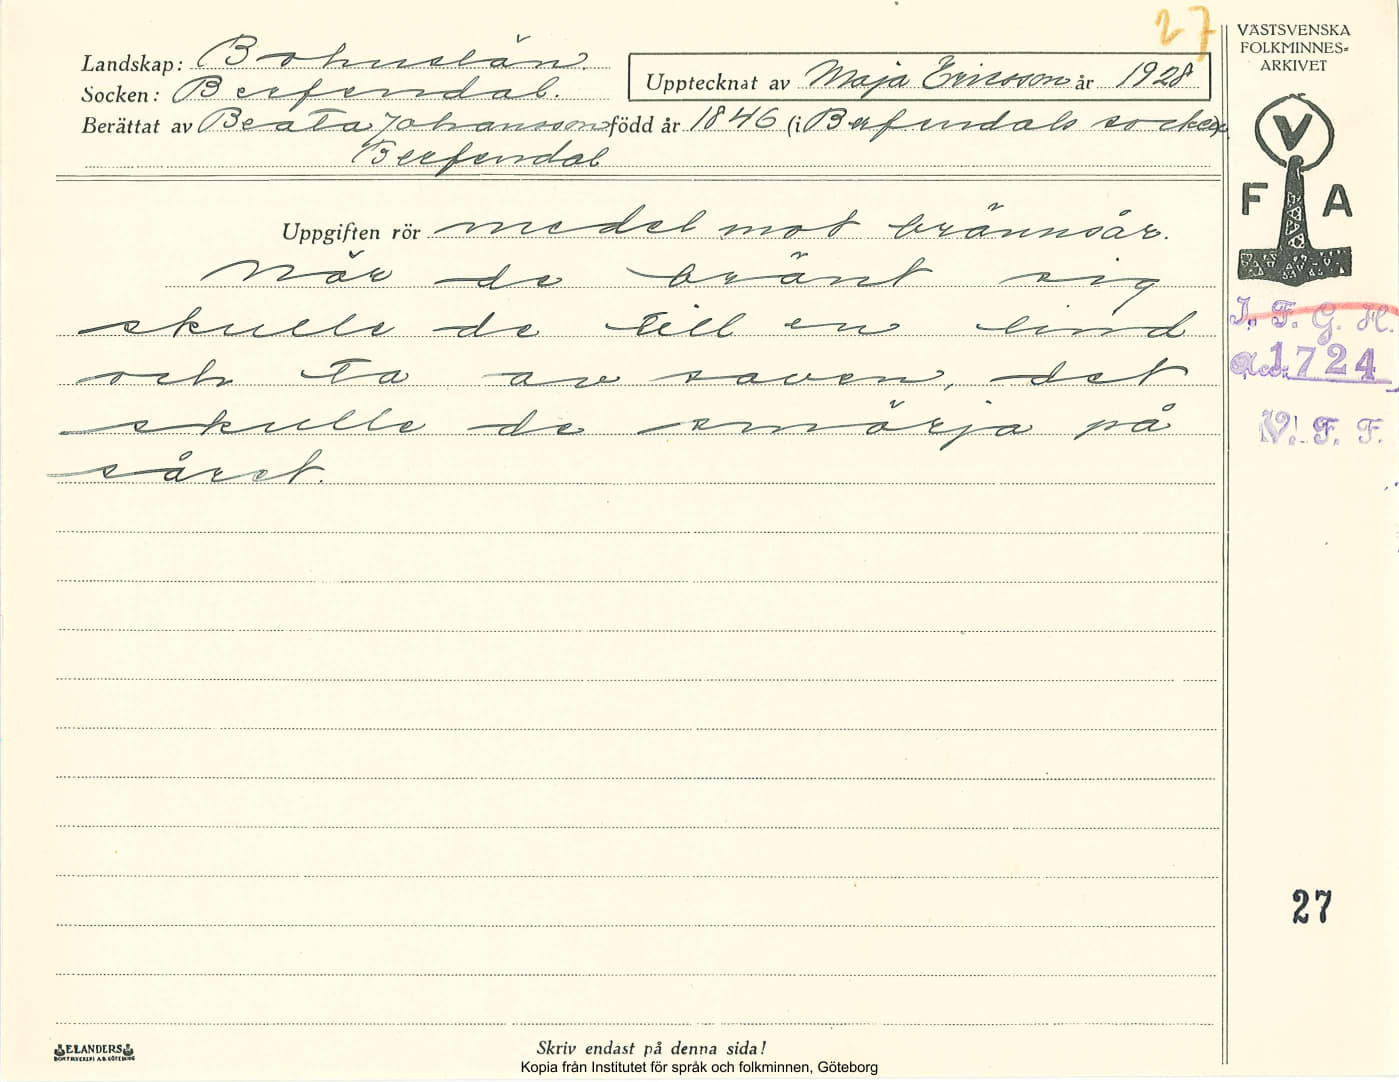 27
VÄSTSVENSKA
FOLKMINNES=
ARKIVET
Landskap: Bohuslän.
Socken: Berfendal.
Upptecknat av Maja Ericsson år 1928
Berättat av Beata Johansson född år 1846 (i Berfendals socken
Berfendal
V
F A
Uppgiften rör medel mot brännsår.
När de bränt sig
skulle de till en lind
och ta av saven, det
skulle de smörja på
såret.
I. F. G. H.
Acc. 1724
V. F. F.
27
ELANDERS
BOKTRYCKERI A.B. GÖTEBORG
Skriv endast på denna sida!
Kopia från Institutet för språk och folkminnen, Göteborg